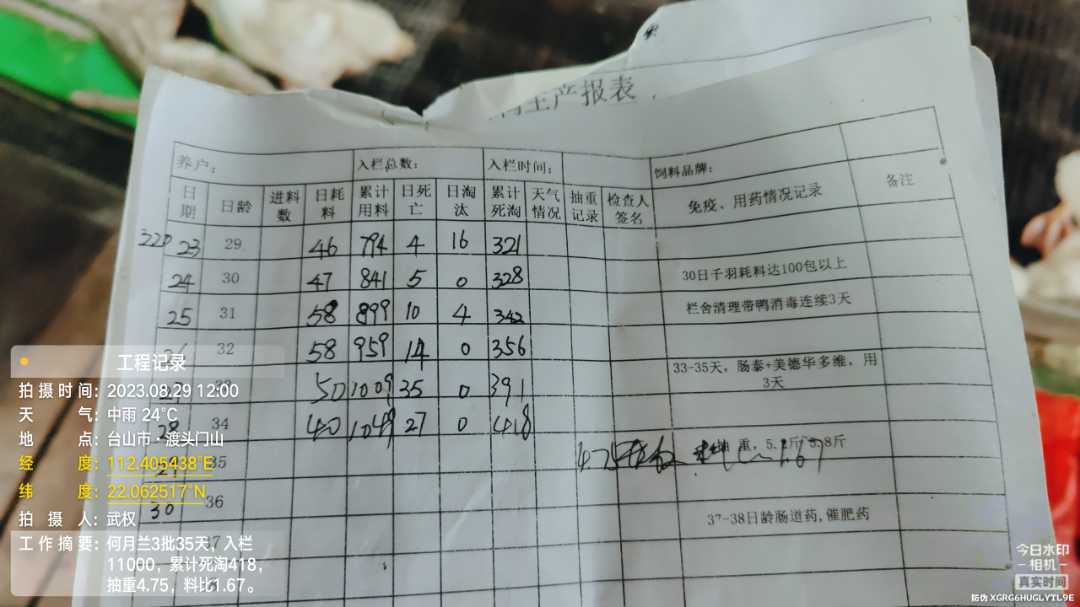 生产报表
养户： 入栏总数： 入栏时间： 饲料品牌：
日期 日龄 进料数 日耗料 累计用料 日死亡 日淘汰 累计死淘 天气情况 抽重记录 检查人签名 免疫、用药情况记录 备注
320 23 29 46 794 4 16 321
24 30 47 841 5 0 328 30日千羽耗料达100包以上
25 31 58 899 10 4 342 栏舍清理带鸭消毒连续3天
32 58 959 14 0 356 33-35天，肠泰+美德华多维，用3天
50 1009 35 0 391
28 34 40 1049 27 0 418
35 4.75 1.67
30 36 37-38日龄肠道药,催肥药
工程记录
拍摄时间：2023.08.29 12:00
天气：中雨 24℃
地点：台山市·渡头门山
经度：112.405438°E
纬度：22.062517°N
拍摄人：武权
工作摘要：何月兰3批35天，入栏
11000，累计死淘418，
抽重4.75，料比1.67。
今日水印
相机
真实时间
防伪 XGRG6HUGLYTL9E